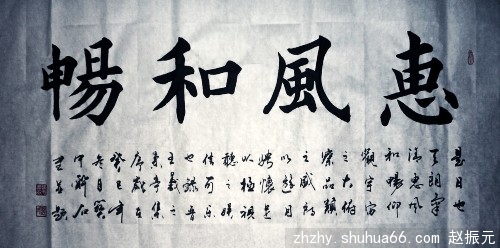 惠風和暢
是日也
天朗氣
清惠風
和暢仰
觀宇宙
之大俯
察品類
之盛所
以遊目
騁懷足
以極視
聽之娛
信可樂
也錄
王羲之
蘭亭集
序
癸巳年
zhzhy.shuhua66.com 赵振元